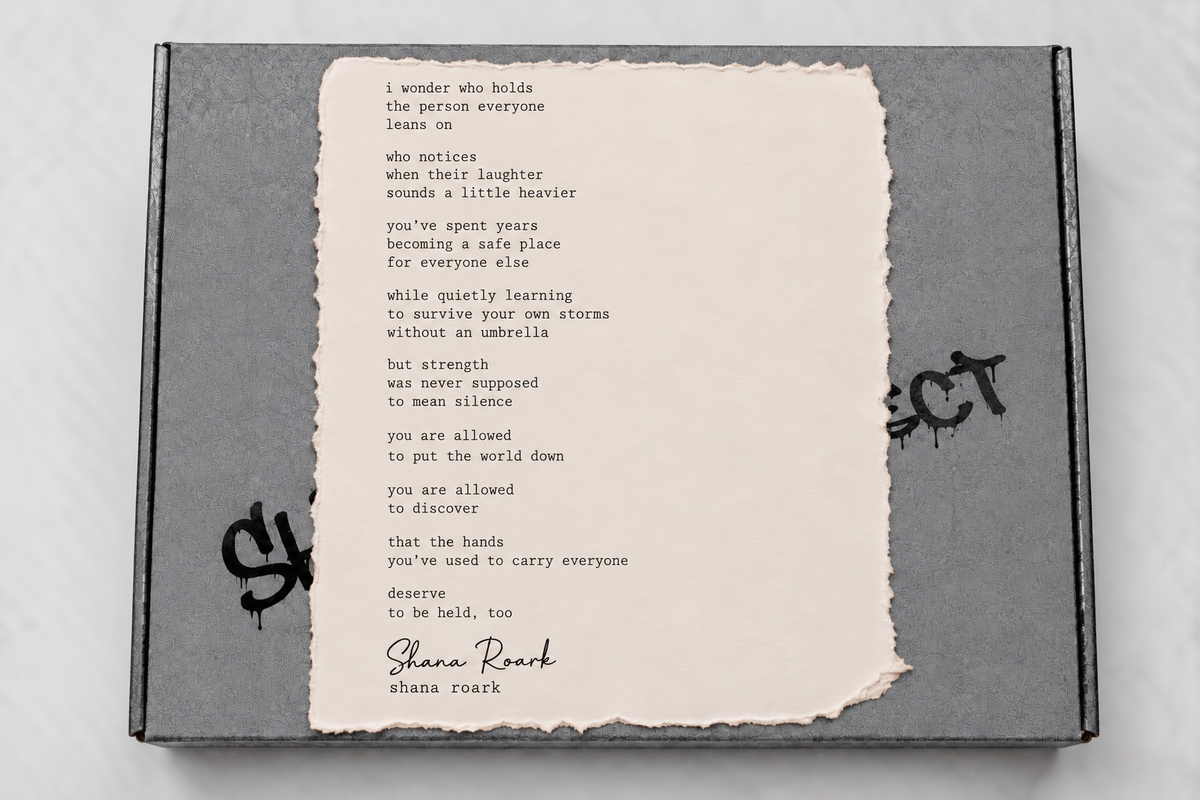 i wonder who holds
the person everyone
leans on
who notices
when their laughter
sounds a little heavier
you’ve spent years
becoming a safe place
for everyone else
while quietly learning
to survive your own storms
without an umbrella
but strength
was never supposed
to mean silence
you are allowed
to put the world down
you are allowed
to discover
that the hands
you’ve used to carry everyone
deserve
to be held, too
Shana Roark
shana roark